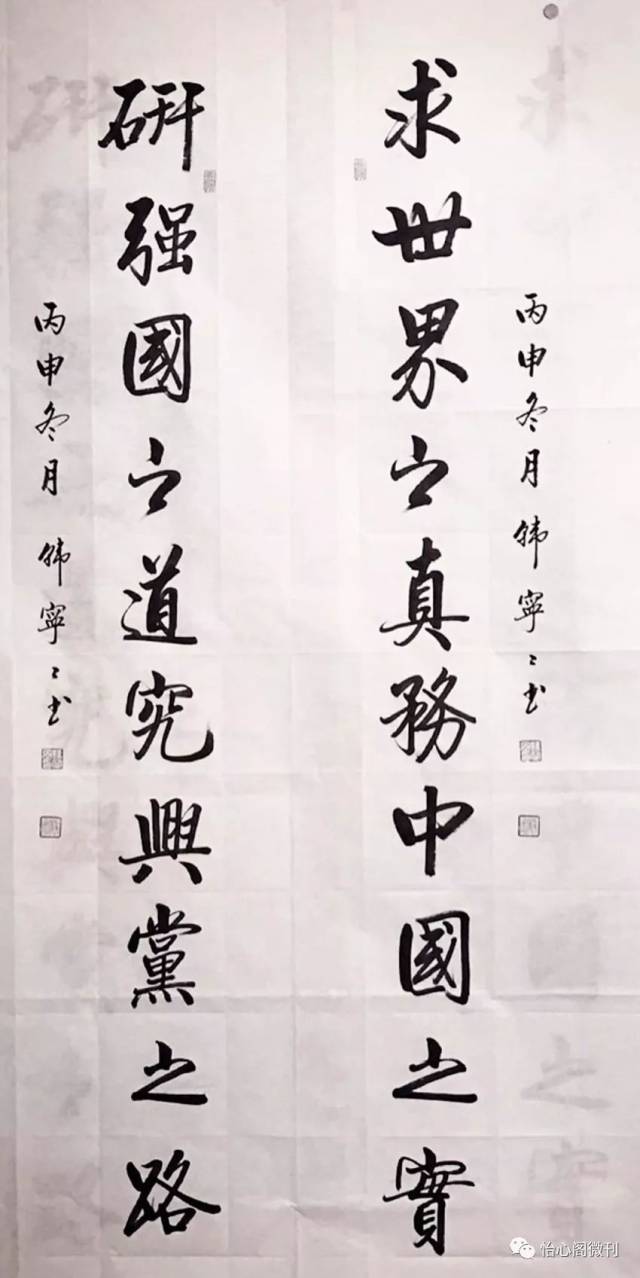 丙申冬月韩宁宁书
求世界之真務中國之實
研强國之道究興黨之路
丙申冬月韩宁宁书
怡心阁微刊